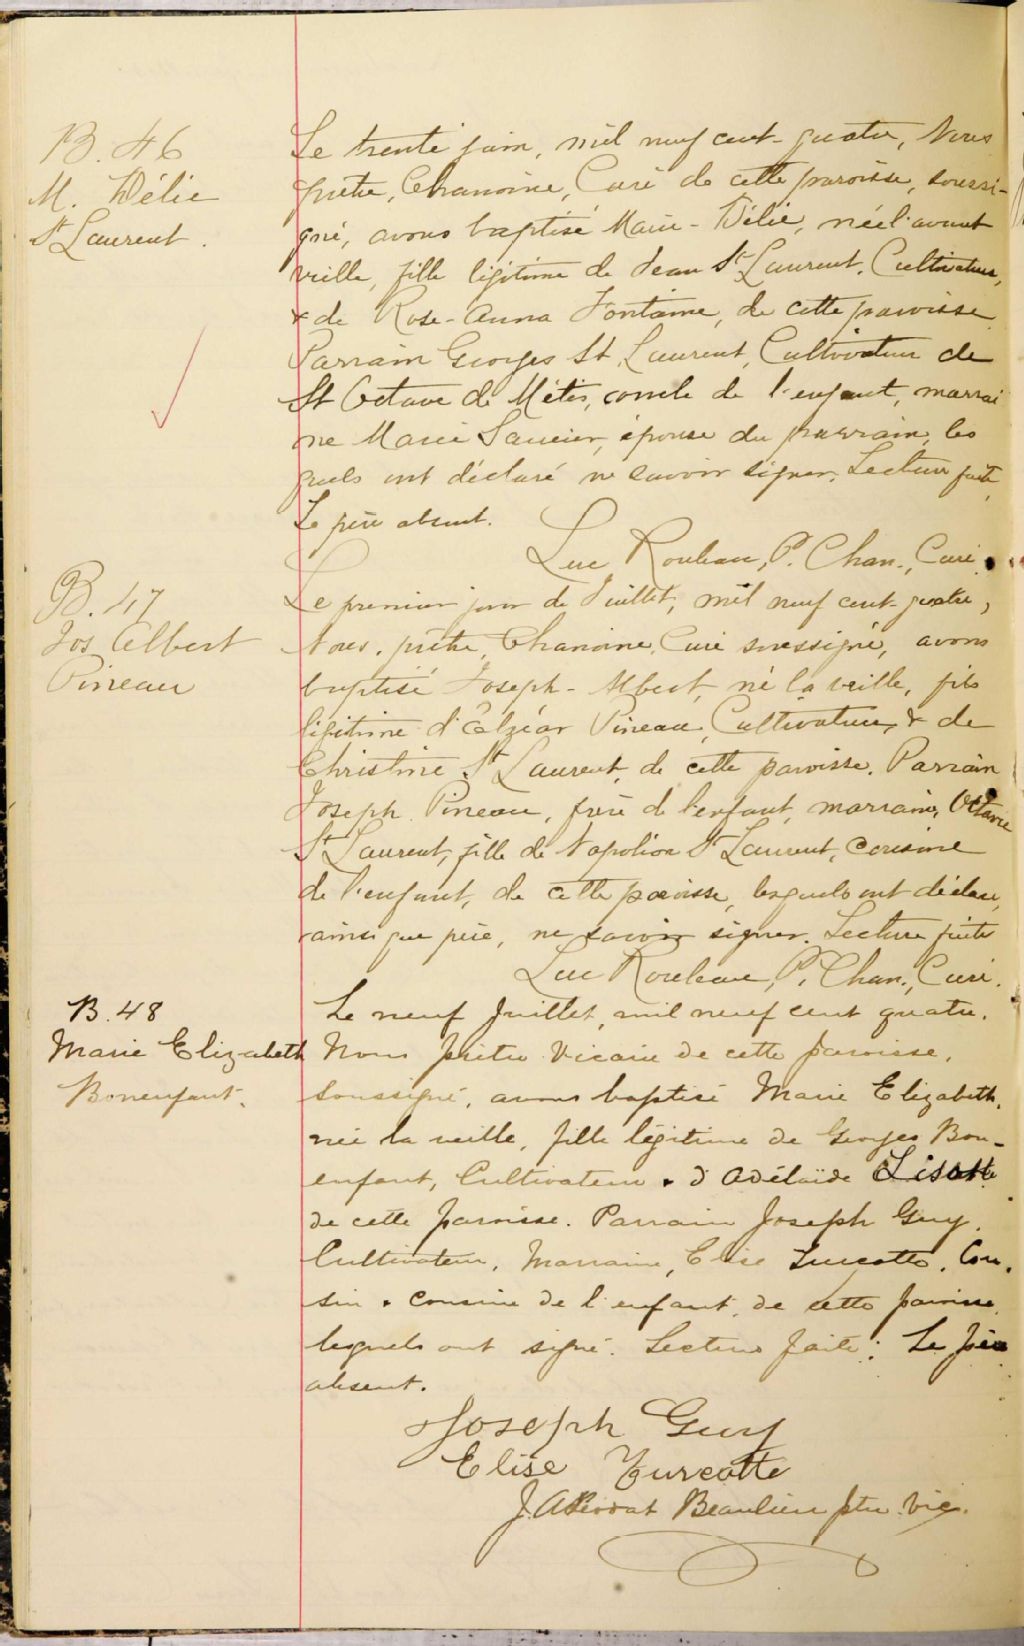 B. 46
M. Délie
St Laurent.
Le trente juin, mil neuf cent-quatre, Nous
prêtre, Chanoine, Curé de cette paroisse, soussi-
gné, avons baptisé Marie-Délie, née l'avant
veille, fille légitime de Jean St Laurent, Cultivateur,
& de Rose-Anna Fontaine, de cette paroisse
Parrain Georges St Laurent, Cultivateur de
St Octave de Métis, oncle de l'enfant, marrai
ne Marie Saucier, épouse du parrain, les
quels ont déclaré ne savoir signer. Lecture faite,
Le père absent.
Luc Rouleau, P. Chan., Curé.
B. 47
Jos Albert
Pineau
Le premier jour de Juillet, mil neuf cent-quatre,
Nous, prêtre, Chanoine, Curé soussigné, avons
baptisé Joseph-Albert, né la veille, fils
légitime d'Elzéar Pineau, Cultivateur, & de
Christine St Laurent, de cette paroisse. Parrain
Joseph Pineau, frère de l'enfant, marraine, Octavie
St Laurent, fille de Napoléon St Laurent, cousine
de l'enfant, de cette paroisse, lesquels ont déclaré,
ainsi que père, ne savoir signer. Lecture faite
Luc Rouleau, P. Chan., Curé.
B. 48
Marie Elizabeth
Bonenfant.
Le neuf Juillet, mil neuf cent quatre.
Nous prêtre Vicaire de cette paroisse,
soussigné, avons baptisé Marie Elizabeth,
née la veille, fille légitime de Georges Bon-
enfant, Cultivateur & d'Adélaïde Lisotte
de cette paroisse. Parrain Joseph Guy,
Cultivateur, Marraine, Elise Turcotte, Cou-
sin & cousine de l'enfant, de cette paroisse,
lesquels ont signé. Lecture faite. Le père
absent.
Joseph Guy
Elise Turcotte
J. A. Beaulieu ptre Vic.